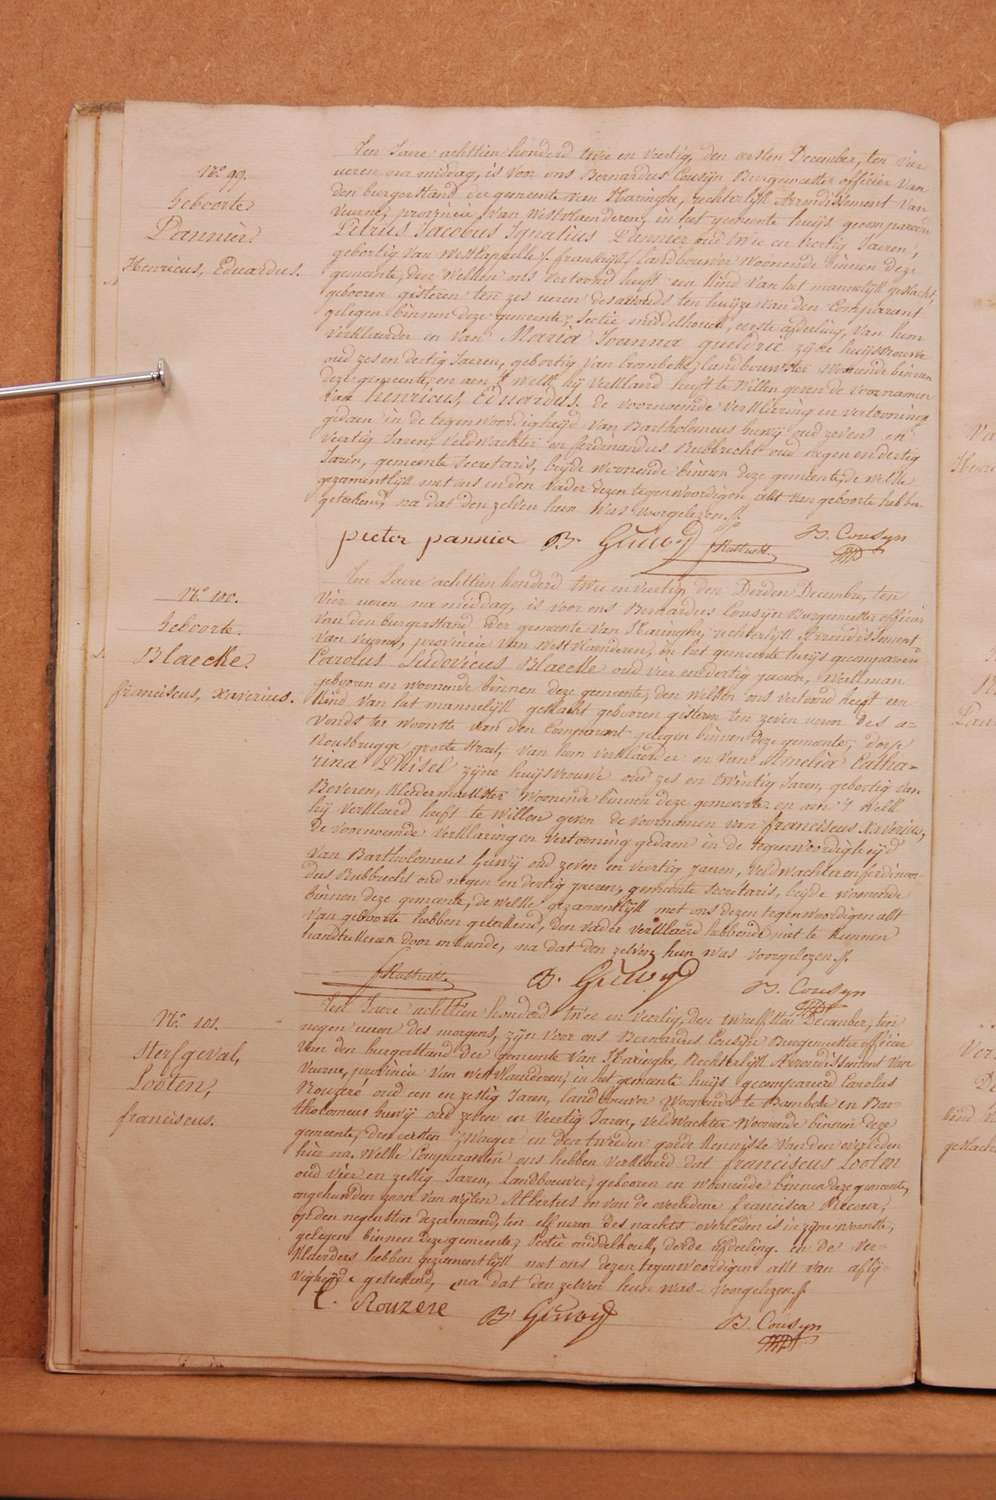 N.º 99.
Geboorte.
Pannier.
Henricus, Eduardus.
Ten Jaere achttien honderd twee en veertig, den eersten December, ten vier
ueren na middag, is voor ons Bernardus Cousijn Burgemeester officier van
den burgerstand der gemeente van Haringhe, rechterlijk Arrondissement van
Veurne, provincie van Westvlaenderen, in het gemeente huijs gecompareerd
Petrus Jacobus Ignatius Pannier oud twee en dertig Jaeren,
geboortig van Westcappelle, frankrijk, Landbouwer woonende binnen deze
gemeente, den welken ons vertoond heeft een kind van het mannelijk geslacht,
gebooren gisteren ten zes ueren des avonds ten huijze van den Comparant
gelegen binnen deze gemeente, Sectie middelhouck, eerste afdeeling, van hem
verklaerder en van Maria Joanna quebrie zijne huijsvrouwe
oud zes en dertig Jaeren, geboortig van Crombeke, Landbouwster woonende binnen
deze gemeente, en aen 't welk hij verklaerd heeft te willen geven de voornamen
van henricus, Eduardus. de voornoemde verklaring en vertooning
gedaen in de tegenwoordigheijd van Bartholomeus huwij oud zeven en
veertig Jaeren, veldwachter en ferdinandus Rubbrecht oud negen en dertig
Jaeren, gemeente Secretaris, beijde woonende binnen deze gemeente, de welke
gezamentlijk met ons en den vader dezen tegenwoordigen akt van geboorte hebben
geteekend, na dat den zelven hun was voorgelezen.
pieter pannier B. Huwyd fRubbrecht B. Cousyn
N.º 100.
Geboorte.
Blaecke.
franciscus, xaverius.
Ten Jaere achttien honderd twee en veertig, den Derden Decembre, ten
vier ueren na middag, is voor ons Bernardus Cousijn Burgemeester officier
van den burgerstand der gemeente van Haringhe, rechterlijk Arrondissement
van veurne, provincie van Westvlaenderen, in het gemeente huijs gecompareerd
Carolus Ludovicus Blaecke oud vier en dertig jaeren, werkman
gebooren en woonende binnen deze gemeente, den welken ons vertoond heeft een
kind van het mannelijk geslacht gebooren gisteren ten zeven ueren des a-
vonds ter woonste van den Comparant gelegen binnen deze gemeente, dorp
Rousbrugge groote straet, van hem verklaerder en van Amelia Catha-
rina Phisel zijne huijsvrouwe oud zes en twintig Jaeren, geboortig van
Beveren, kledermaekster woonende binnen deze gemeente en aen 't welk
hij verklaerd heeft te willen geven de voornamen van franciscus xaverius,
de voornoemde verklaring en vertooning gedaen in de tegenwoordigheijd
van Bartholomeus huwij oud zeven en veertig Jaeren, veldwachter en ferdinan-
dus Rubbrecht oud negen en dertig jaeren, gemeente secretaris, beijde woonende
binnen deze gemeente, de welke gezamentlijk met ons dezen tegenwoordigen akt
van geboorte hebben geteekend, den vader verklaerd hebbende niet te kunnen
handteekenen door onkunde, na dat den zelven hun was voorgelezen.
fRubbrecht B. Huwyd B. Cousyn
N.º 101.
Sterfgeval,
Looten,
franciscus.
Ten Jaere achttien honderd twee en veertig, den twaelfsten December, ten
negen ueren des morgens, zijn voor ons Bernardus Cousijn Burgemeester officier
van den burgerstand der gemeente van Haringhe, Rechterlijk Arrondissement van
Veurne, provincie van Westvlaenderen, in het gemeente huijs gecompareerd Carolus
Rouzeré oud een en zestig Jaeren, landbouwer woonende te Bambeke en Bar-
tholomeus huwij oud zeven en veertig Jaeren, veldwachter woonende binnen deze
gemeente, den eersten zwager en den tweeden goede kennisse van den overleden
hier na. welke Comparanten ons hebben verklaerd dat franciscus Looten
oud vier en zestig Jaeren, landbouwer, gebooren en woonende binnen deze gemeente,
zoon van wijlen Albertus en van de overledene francisca Decoer,
op den negensten dezer maend, ten elf ueren des nachts overleden is in zijne woonste,
gelegen binnen deze gemeente, Sectie middelhouck, derde afdeeling. en de ver-
klaerders hebben gezamentlijk met ons dezen tegenwoordigen akt van aflij-
vigheijd geteekend, na dat den zelven hun was voorgelezen.
C. Rouzere B. Huwyd B. Cousyn